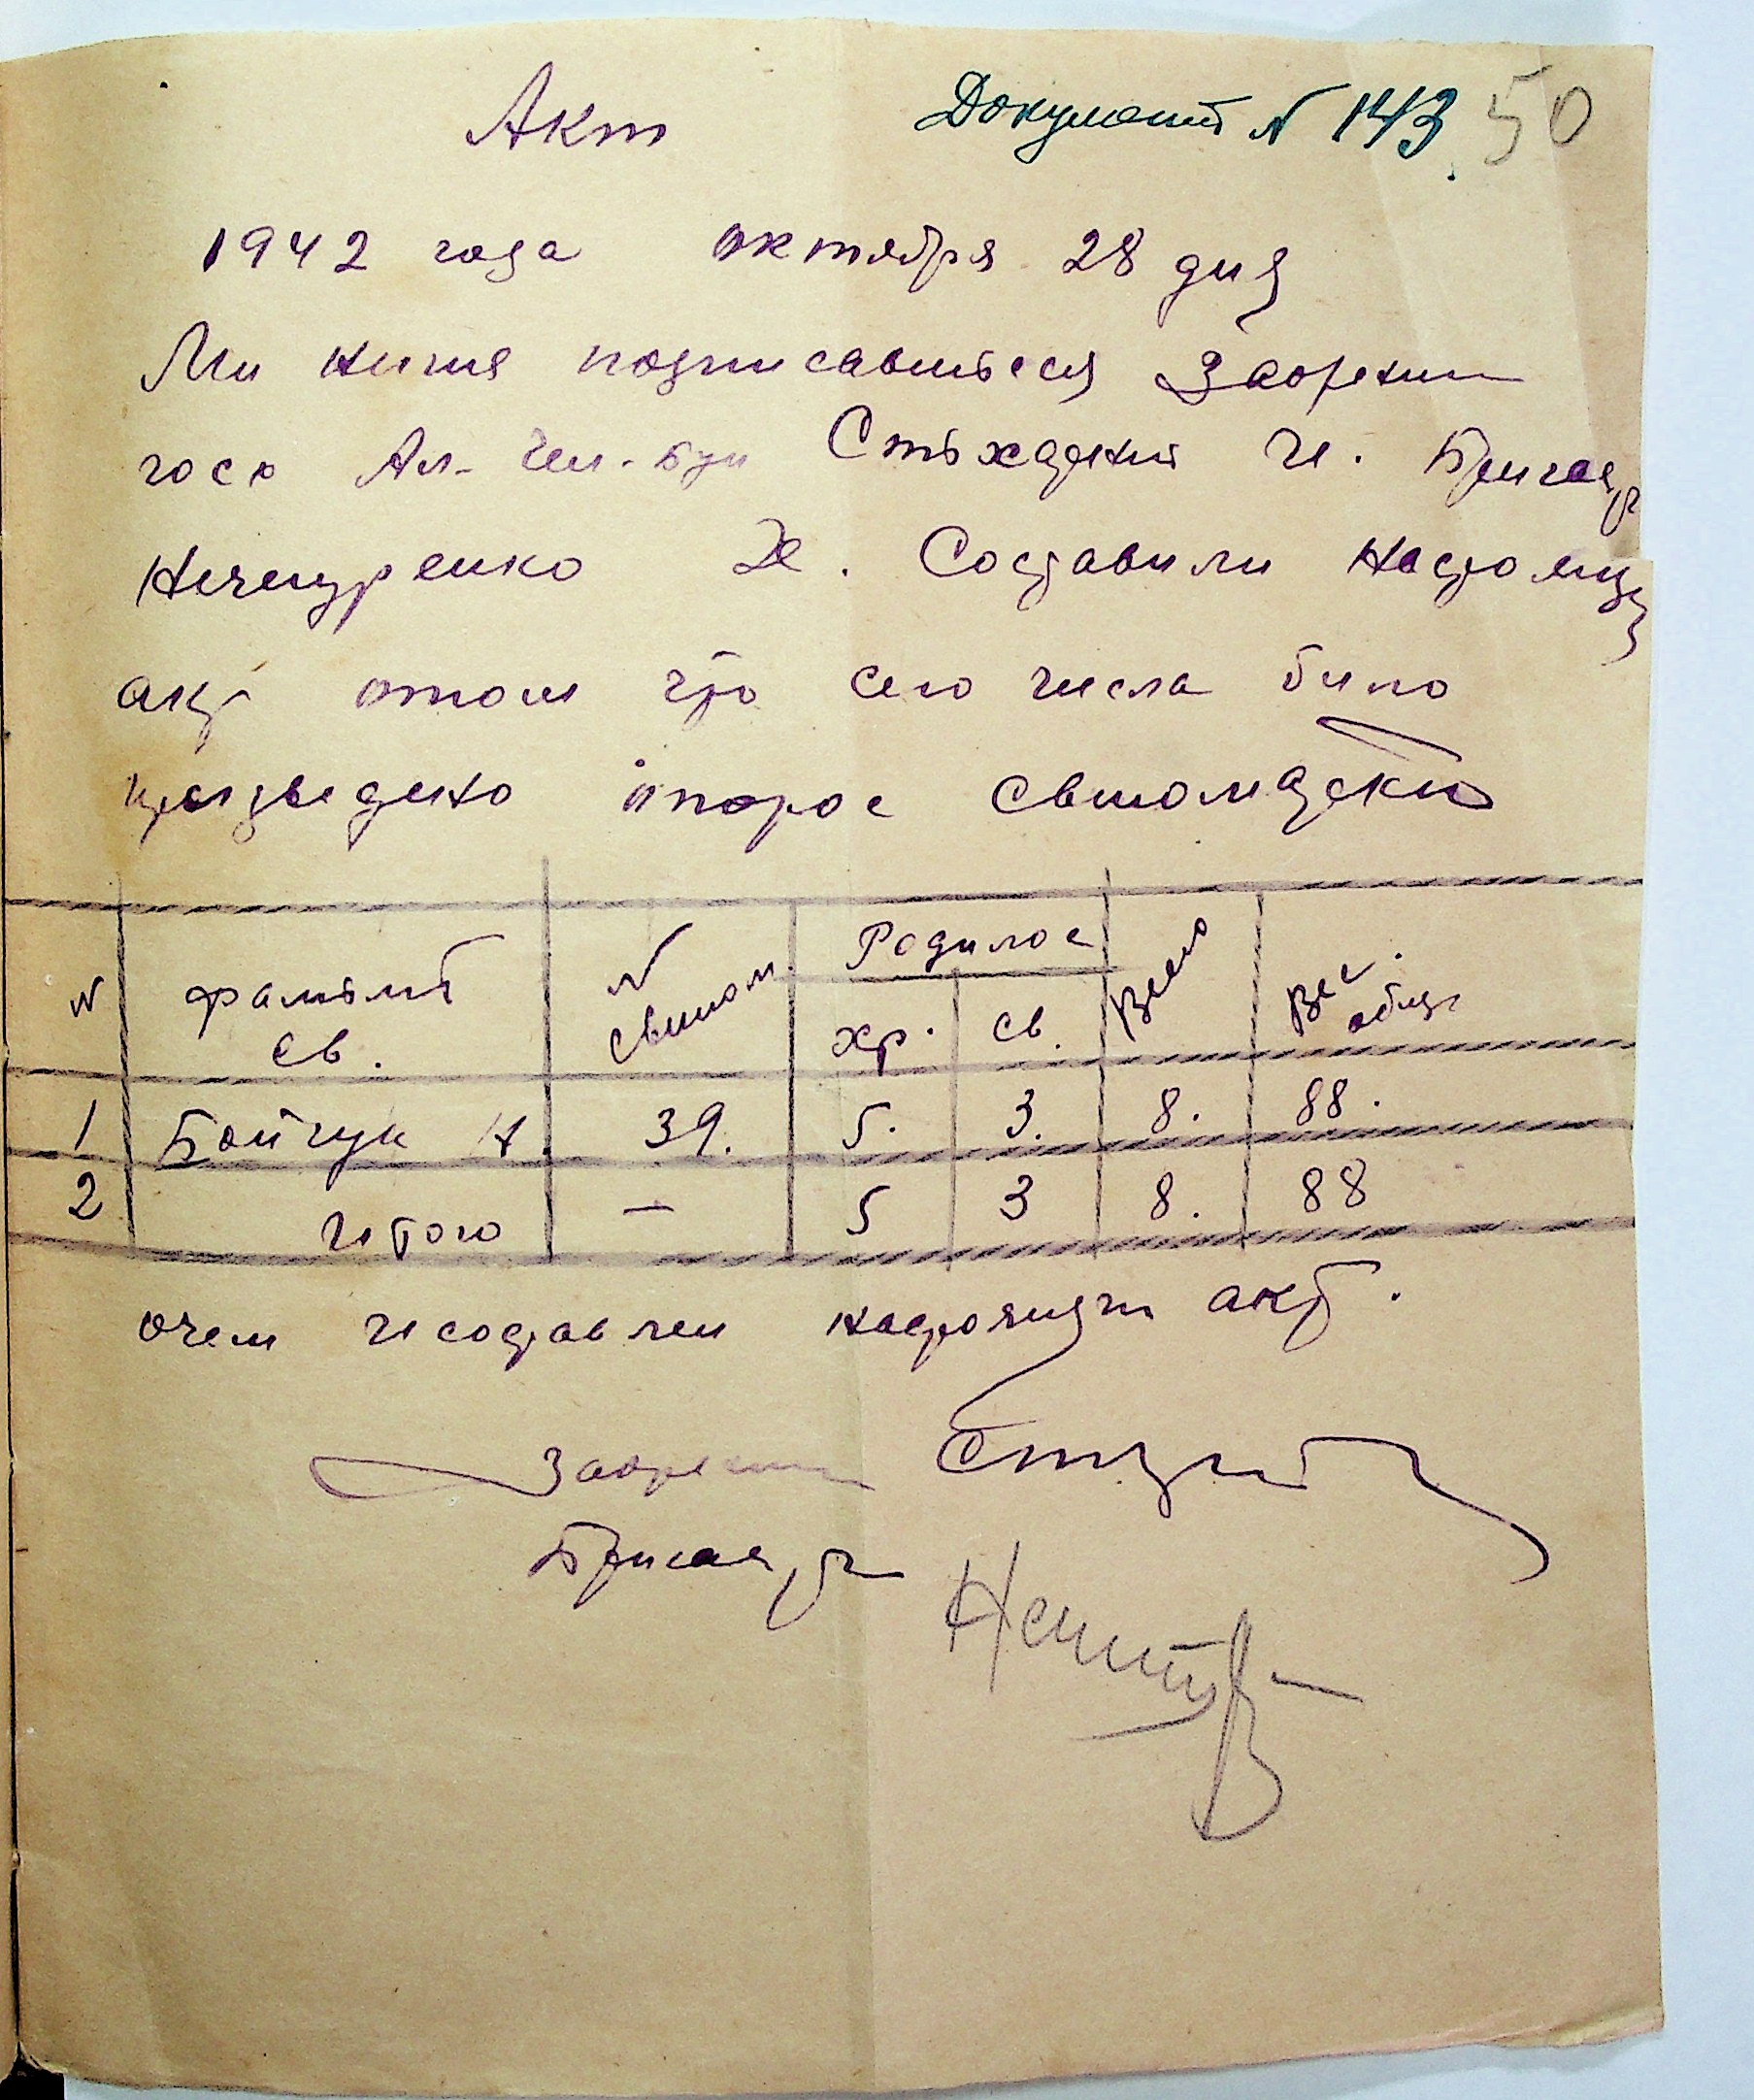 Акт Документ № 143 50
1942 года октября 28 дня
Ми ниже подписавшьеся Заорении
госк Ал- Чел- Стъждения И. Бригад
Нечепуренко Д. Составили настоящ
акт отом что сего числа било
произведено опорос свиноматки
№ фамъля св. № свином. Родилос Всего Вес общ
хр. св.
1 Бойчук Н. 39. 5. 3. 8. 88.
2 Итого — 5 3 8. 88
очем исоставлен настоящи акт.
Бригад